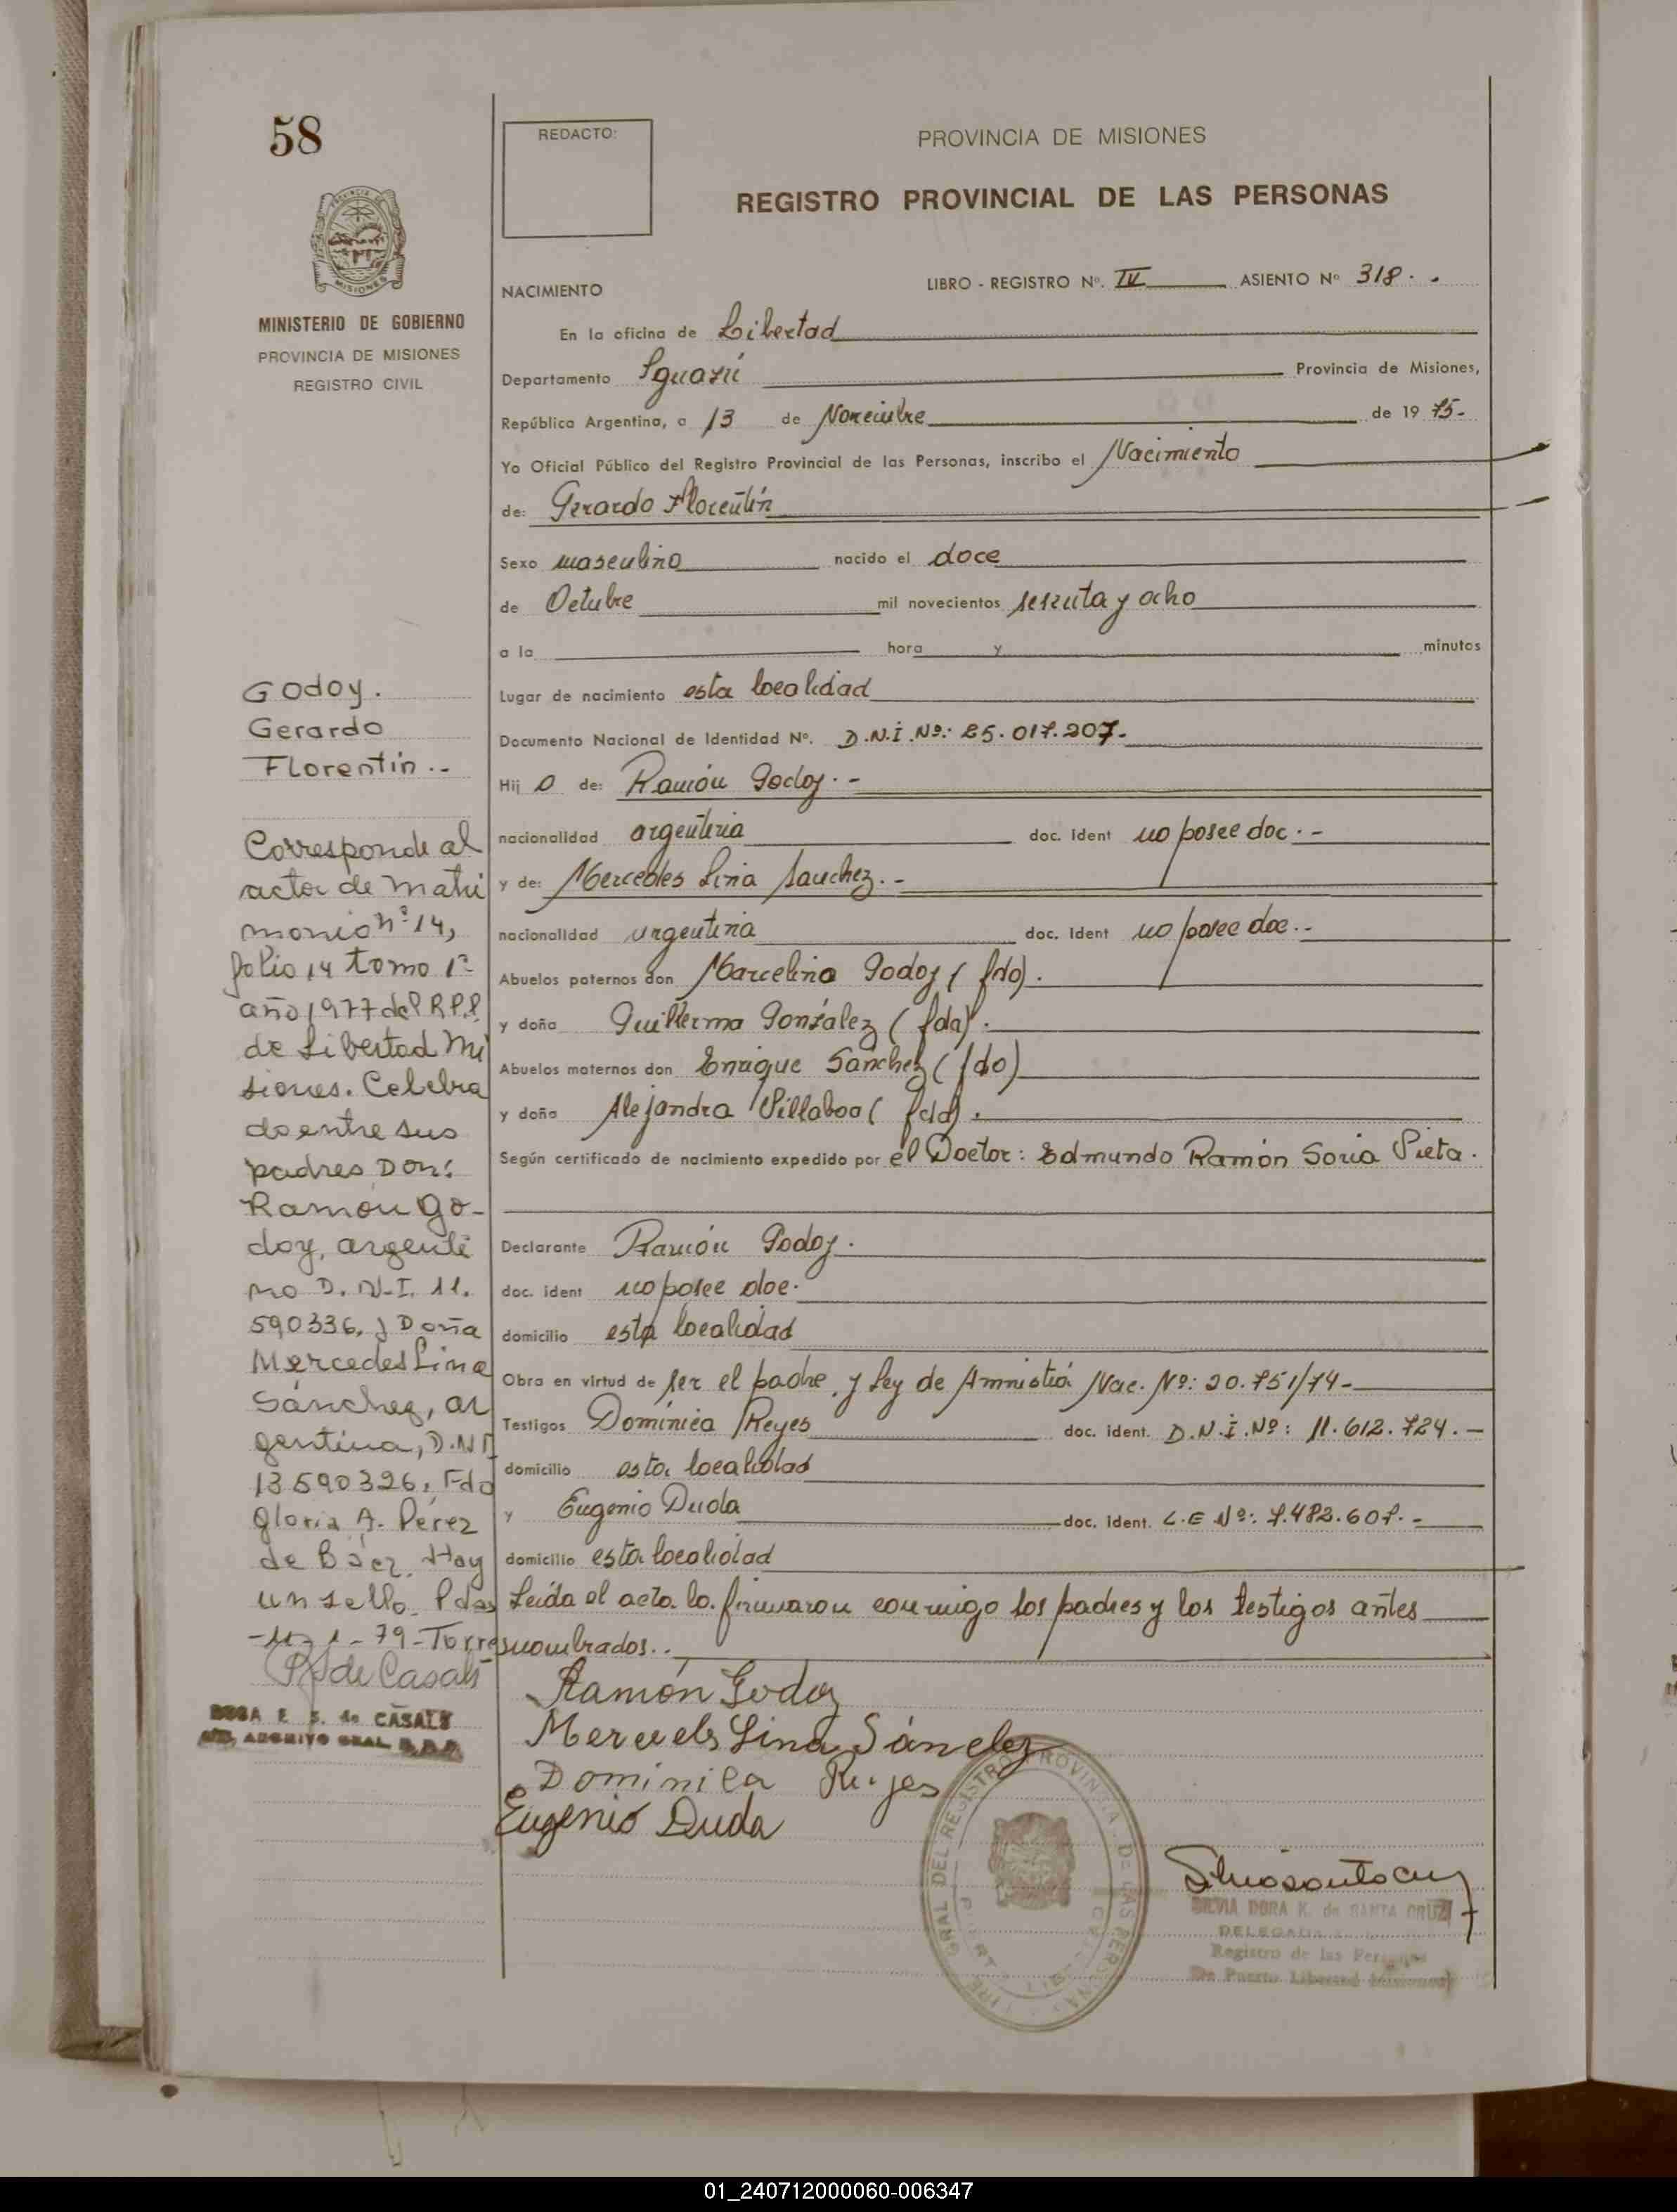 58
REDACTO:
PROVINCIA DE MISIONES
REGISTRO PROVINCIAL DE LAS PERSONAS
MISIONES
MINISTERIO DE GOBIERNO
PROVINCIA DE MISIONES
REGISTRO CIVIL
NACIMIENTO
LIBRO - REGISTRO Nº. IV ASIENTO Nº 318.
En la oficina de Libertad
Departamento Iguazú Provincia de Misiones,
República Argentina, a 13 de Noviembre de 19 75-
Yo Oficial Público del Registro Provincial de las Personas, inscribo el Nacimiento
de: Gerardo Florentín
Sexo masculino nacido el doce
de Octubre mil novecientos sesenta y ocho
a la hora y minutos
Lugar de nacimiento esta localidad
Documento Nacional de Identidad Nº. D.N.I.Nº: 25.017.207.-
Hij o de: Ramón Godoy.-
nacionalidad argentina doc. ident no posee doc.-
y de: Mercedes Lina Sanchez.-
nacionalidad argentina doc. ident no posee doc.-
Abuelos paternos don Marcelino Godoy (fdo).
y doña Guillerma González (fda).
Abuelos maternos don Enrique Sánchez (fdo)
y doña Alejandra Villaboa (fda).
Según certificado de nacimiento expedido por el Doctor: Edmundo Ramón Soria Vieta.
Declarante Ramón Godoy.
doc. ident no posee doc.
domicilio esta localidad
Obra en virtud de ser el padre, y Ley de Amnistía Nac. Nº: 20.751/74-
Testigos Dominica Reyes doc. ident. D.N.I.Nº: 11.612.724.-
domicilio esta localidad
y Eugenio Duda doc. ident. L.E Nº: 7.482.607.-
domicilio esta localidad
Leída el acta la firmaron conmigo los padres y los testigos antes
nombrados..
Ramón Godoy
Mercedes Lina Sánchez
Dominica Reyes
Eugenio Duda
Godoy.
Gerardo
Florentin.-
Corresponde al
acta de matri
monio nº 14,
folio 14 tomo 1º
año 1977 del R.P.P.
de Libertad Mi
siones. Celebra
do entre sus
padres Don:
Ramón Go-
doy, argenti
no D.N.I. 11.
590336, y Doña
Mercedes Lina
Sánchez, ar
gentina, D.N.I
13590326, Fdo
Gloria A. Pérez
de Báez. Hay
un sello. Pdas
1-79-Torres
de Casals
ROSA E. S. de CASALS
ARCHIVO GRAL. R.P.P.
SILVIA DORA K. de SANTA CRUZ
DELEGADA
Registro de las Personas
De Puerto Libertad (Misiones)
01_240712000060-006347